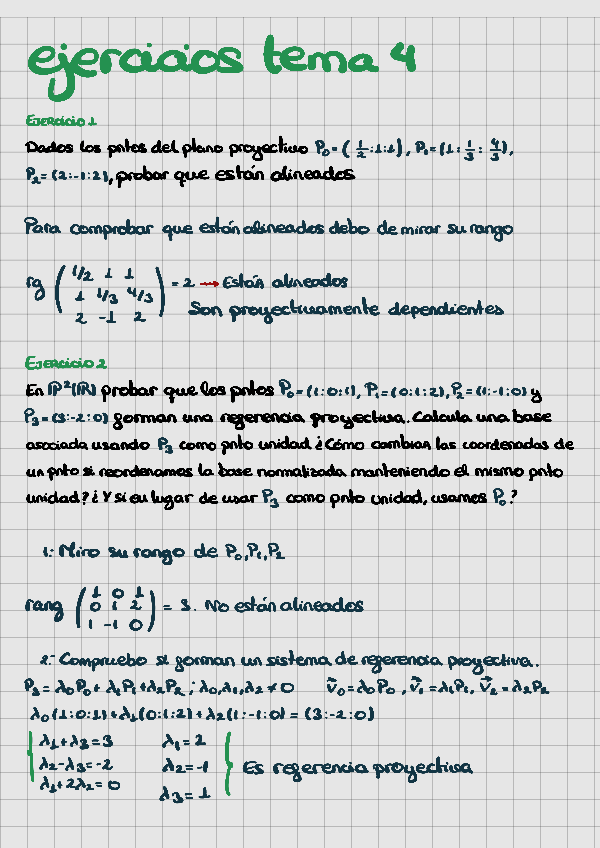 ejercicios tema 4
Ejercicio 1
Dados los pntos del plano proyectivo P₀=(1/2:1:1), P₁=(1:1/3:4/3),
P₂=(2:-1:2), probar que están alineados
Para comprobar que están alineados debo de mirar su rango
rg ( 1/2 1 1
1 1/3 4/3
2 -1 2 ) = 2 → Están alineados
Son proyectivamente dependientes
Ejercicio 2
En ℙ²(ℝ) probar que los pntos P₀=(1:0:1), P₁=(0:1:2), P₂=(1:-1:0) y
P₃=(3:-2:0) forman una referencia proyectiva. Calcula una base
asociada usando P₃ como pnto unidad ¿Cómo cambian las coordenadas de
un pnto si reordenamos la base normalizada manteniendo el mismo pnto
unidad? ¿Y si en lugar de usar P₃ como pnto unidad, usamos P₀?
1: Miro su rango de P₀,P₁,P₂
rang ( 1 0 1
0 1 2
1 -1 0 ) = 3. No están alineados
2: Compruebo si forman un sistema de referencia proyectiva.
P₃=λ₀P₀+λ₁P₁+λ₂P₂ ; λ₀,λ₁,λ₂≠0 v⃗₀=λ₀P₀, v⃗₁=λ₁P₁, v⃗₂=λ₂P₂
λ₀(1:0:1)+λ₁(0:1:2)+λ₂(1:-1:0)=(3:-2:0)
λ₁+λ₃=3 λ₁=2
λ₂-λ₃=-2 λ₂=-1 Es referencia proyectiva
λ₁+2λ₂=0 λ₃=1